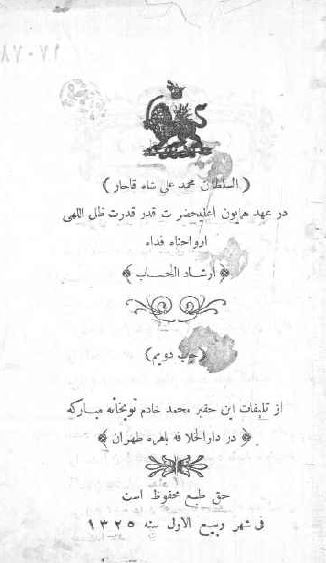 ( السلطان محمد علی شاه قاجار )
در عهد همایون اعلیحضرت قدر قدرت ظل اللهی
ارواحناه فداء
﴿ ارشاد الحساب ﴾
(چاپ دویم)
از تلیفات این حقیر محمد خادم توپخانه مبارکه
﴿ در دارالخلافه باهره طهران ﴾
حق طبع محفوظ است
فی شهر ربیع الاول سنه ۱۳۲۵